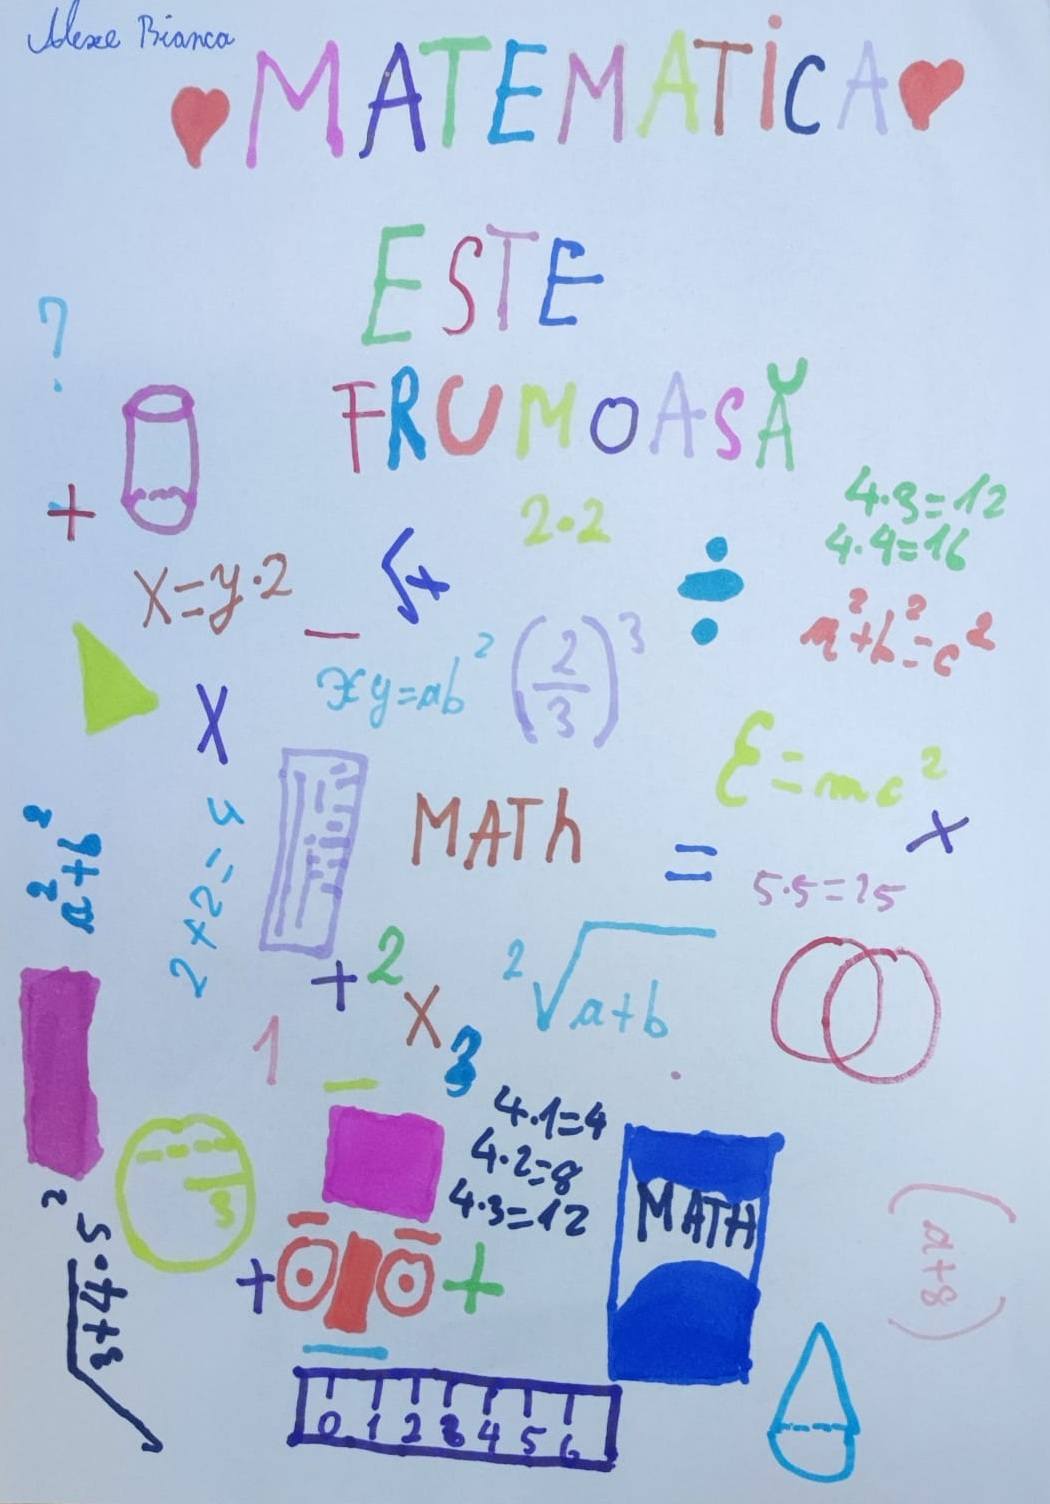 Alexe Bianca
MATEMATICA
ESTE
FRUMOASĂ
?
4·3=12
2·2
+
4·4=16
÷
x=y·2
√x
a²+b²=c²
−
xy=ab²
(2/3)³
x
E=mc²
2+2=4
MATh
x
a²+b²
=
5·5=25
+
2
²√a+b
x
1
3
−
4·1=4
4·2=8
3
4·3=12
MATH
²√5·4+3
(a+8)
+
+
0 1 2 3 4 5 6